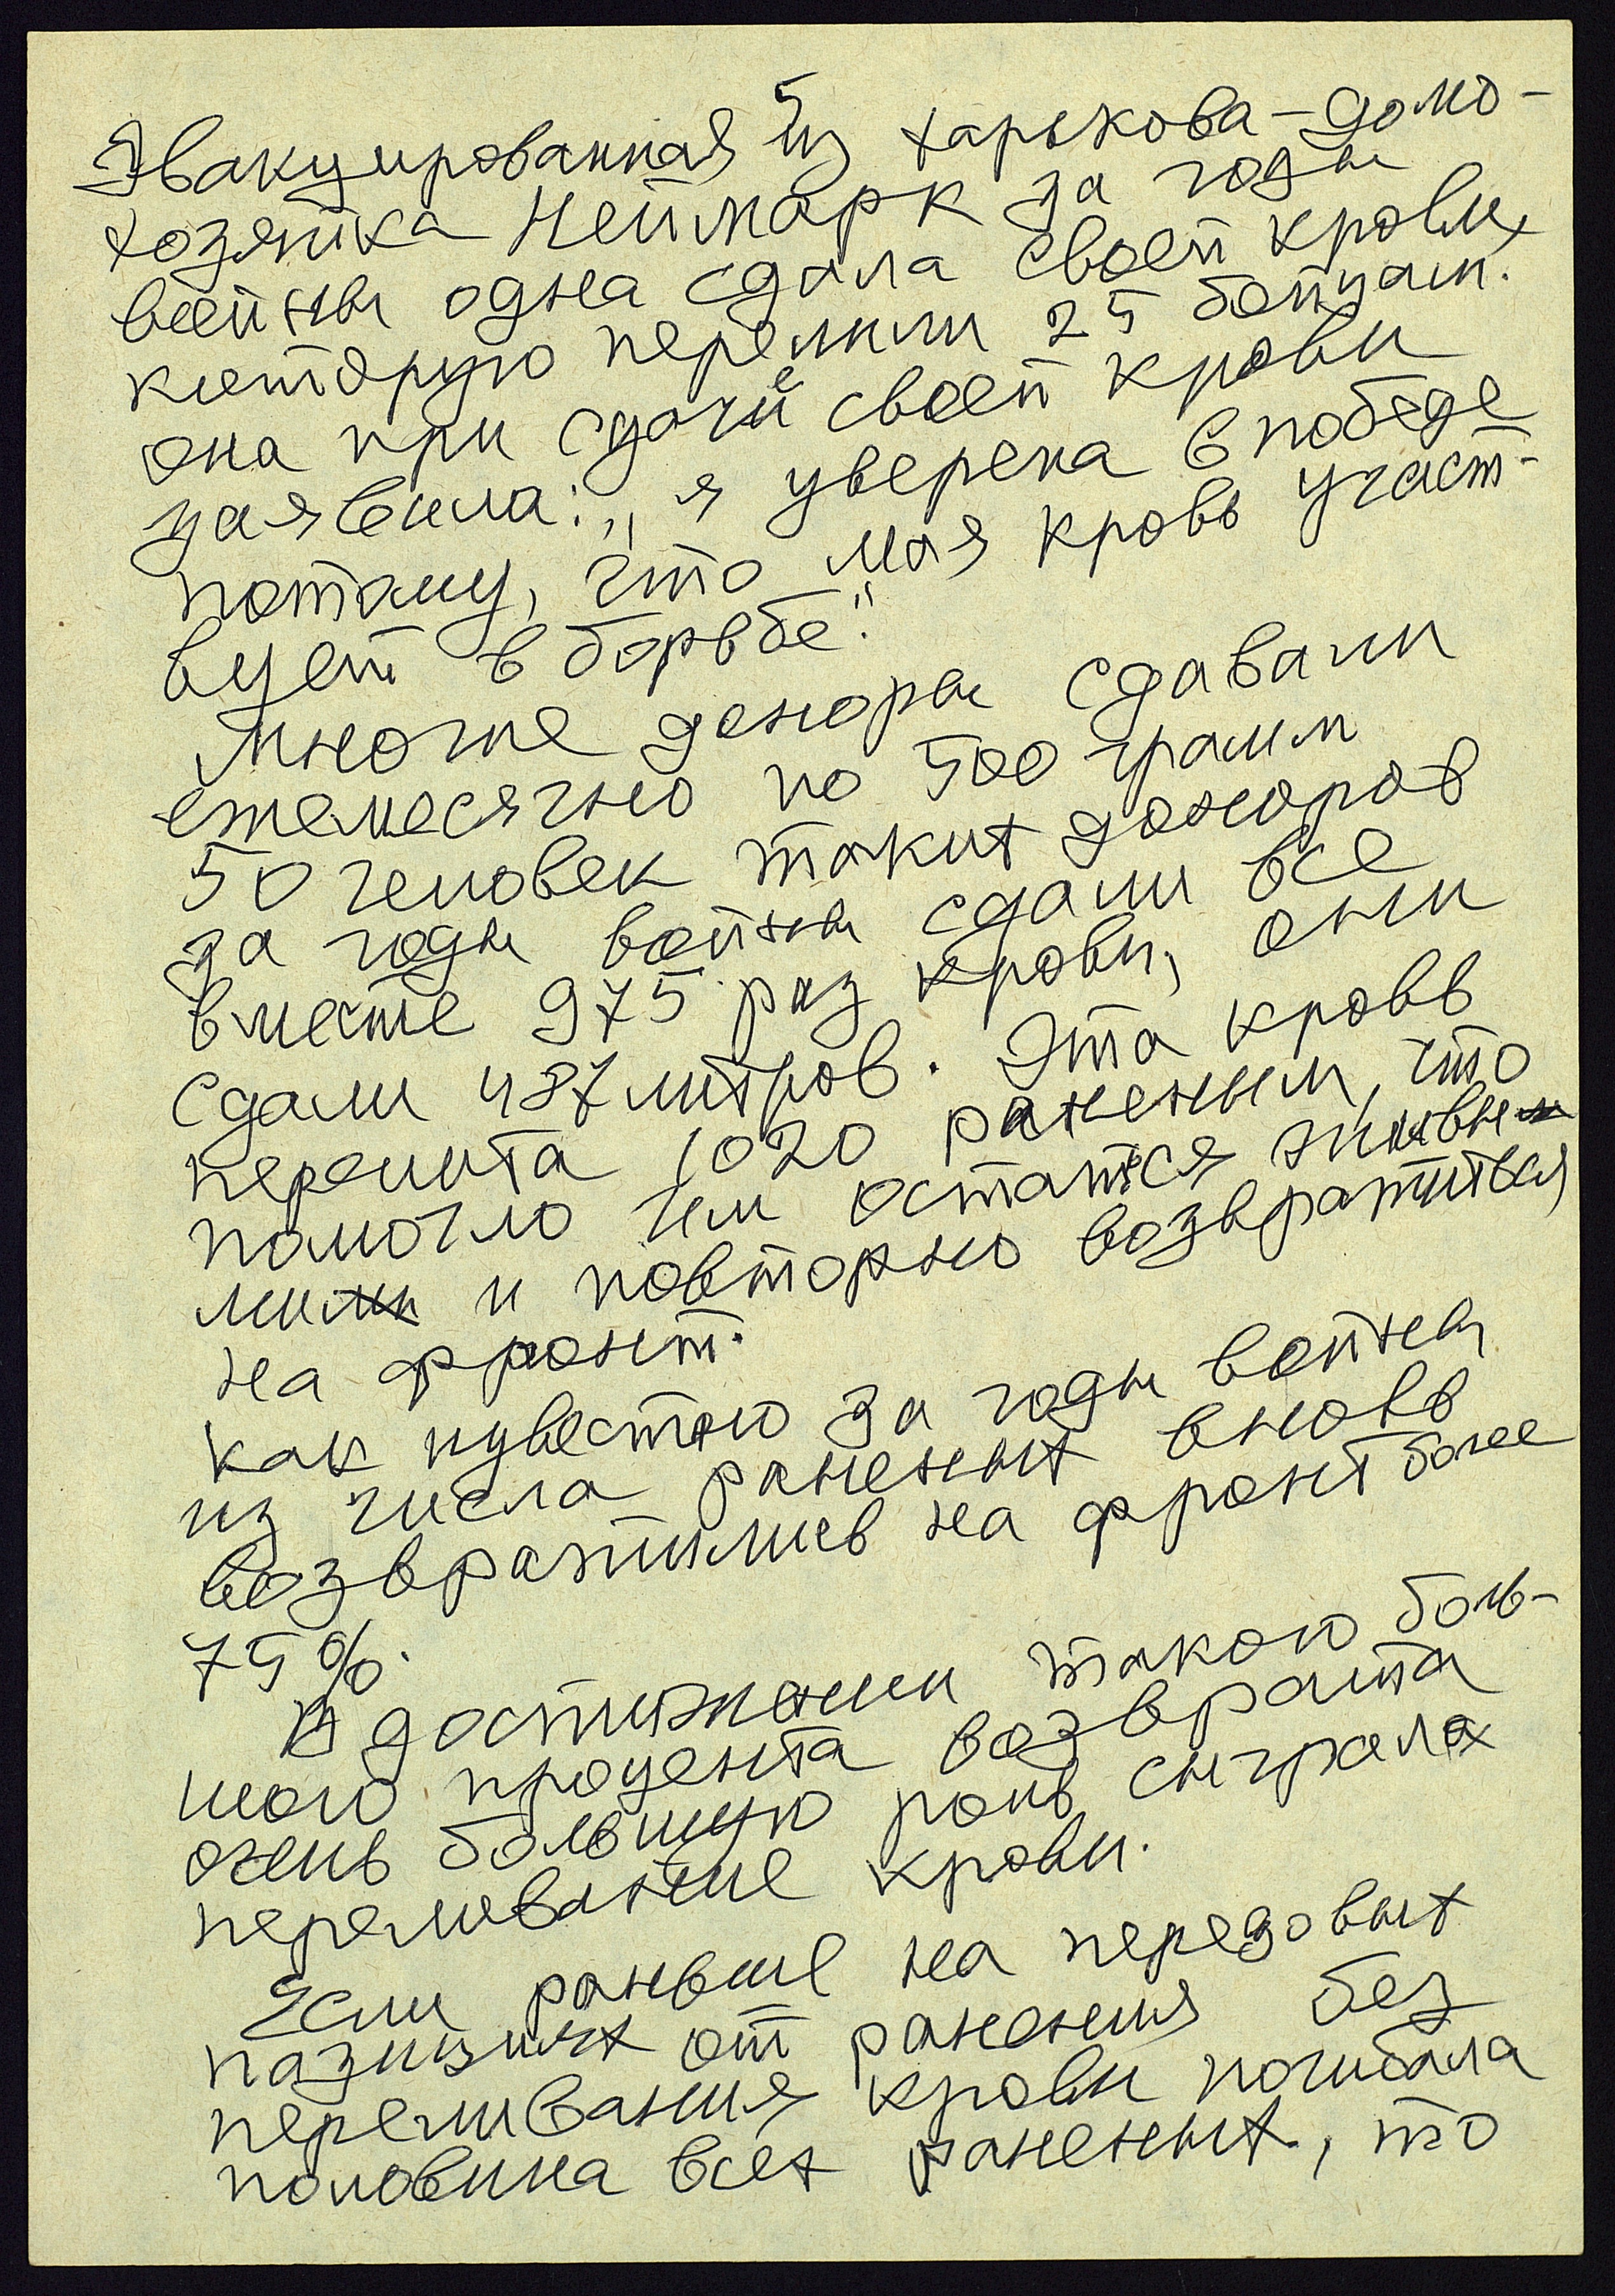 5
Эвакуированная из Харькова – домо-
хозяйка Неймарк за годы
войны одна сдала своей крови,
которую перелили 25 бойцам.
она при сдаче своей крови
заявила: „я уверена в победе
потому, что моя кровь участ-
вует в борьбе".
Многие доноры сдавали
ежемесячно по 500 грамм
50 человек таких доноров
за годы войны сдали все
вместе 975 раз крови, они
сдали 487 литров. Эта кровь
перелита 1020 раненым, что
помогло им остаться живы-
ми и повторно возвратиться
на фронт.
как известно за годы войны
из числа раненых вновь
возвратились на фронт более
75%.
В достижении такого боль-
шого процента возврата
очень большую роль сыграла
переливание крови.
Если раньше на передовых
позициях от ранения без
переливания крови погибала
половина всех раненых, то